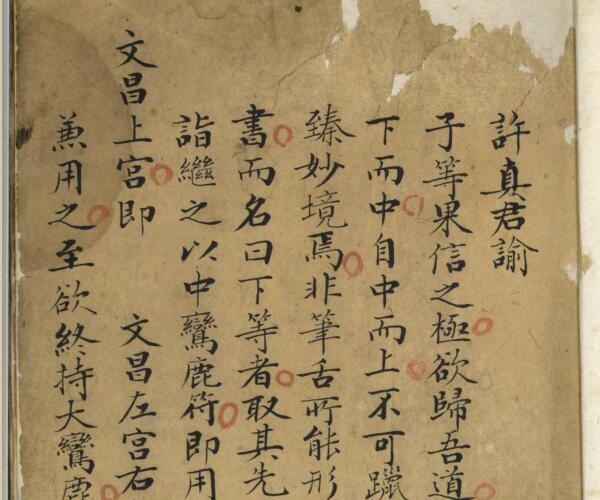 許真君諭
子等果信之極欲歸吾道
下而中自中而上不可躐
臻妙境焉非筆舌所能形
書而名曰下等者取其先
詣繼之以中鸞鹿符即用
文昌上宮即 文昌左宮右
兼用之至欲終持大鸞鹿